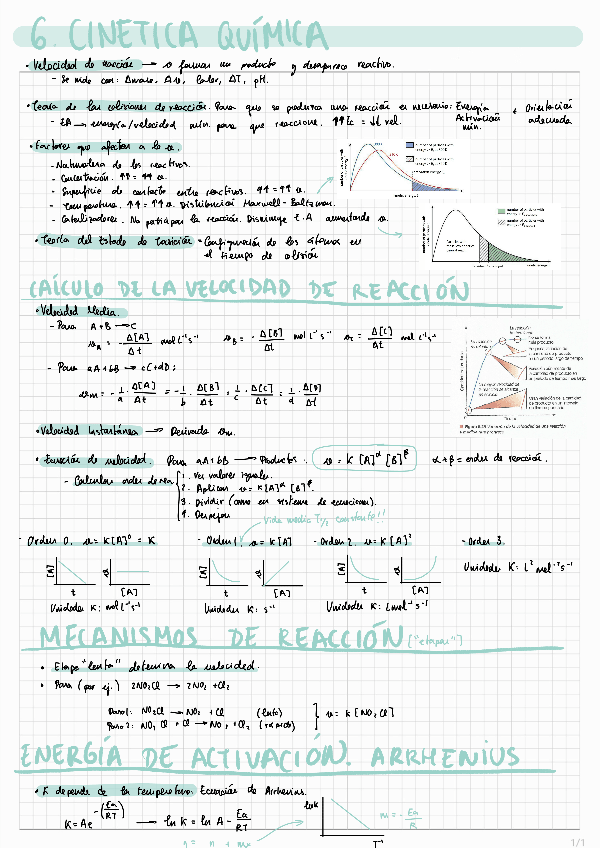 6. CINETICA QUÍMICA
• Velocidad de reacción → o forman un producto y desaparece reactivo.
- Se mide con: Δmasa, Δv, Color, ΔT, pH.
• Teoría de las colisiones de reacción. Para que se produzca una reacción es necesario: Energía Activación mín. + Orientación adecuada
- EA → energía/velocidad mín. para que reaccione. ↑↑Ec = ↓↓ vel.
• Factores que afectan a la v.
- Naturaleza de los reactivos.
- Concentración. ↑↑ = ↑↑ v.
- Superficie de contacto entre reactivos. ↑↑ = ↑↑ v.
- Temperatura. ↑↑ = ↑↑ v. Distribución Maxwell-Boltzman.
- Catalizadores. No participa la reacción. Disminuye E.A aumentando v.
• Teoría del Estado de Transición - Configuración de los átomos en
el tiempo de colisión
CÁLCULO DE LA VELOCIDAD DE REACCIÓN
• Velocidad Media.
- Para A+B → C
v_A = -Δ[A]/Δt mol L⁻¹ s⁻¹ v_B = -Δ[B]/Δt mol L⁻¹ s⁻¹ v = Δ[C]/Δt mol L⁻¹ s⁻¹
- Para aA+bB → cC+dD:
vm = -1/a · Δ[A]/Δt = -1/b · Δ[B]/Δt = 1/c · Δ[C]/Δt = 1/d · Δ[D]/Δt
• Velocidad Instantánea → Derivada vm.
• Ecuación de velocidad. Para aA+bB → Productos: v = K [A]^α [B]^β α+β = orden de reacción.
- Calcular orden de rx
1. Ver valores iguales.
2. Aplicar v = K[A]^α [B]^β.
3. Dividir (como en sistema de ecuaciones).
4. Despejar
Vida media T½ constante!!
- Orden 0. v = K[A]⁰ = K
- Orden 1. v = K[A]
- Orden 2. v = K[A]²
- Orden 3.
[A] t v [A]
Unidades K: mol L⁻¹ s⁻¹
Unidades K: s⁻¹
Unidades K: L mol⁻¹ s⁻¹
Unidades K: L² mol⁻² s⁻¹
MECANISMOS DE REACCIÓN ["etapas"]
• Etapa "lenta" determina la velocidad.
• Para (por ej.) 2NO₂Cl → 2NO₂ + Cl₂
Paso 1: NO₂Cl → NO₂ + Cl (lento)
Paso 2: NO₂Cl + Cl → NO₂ + Cl₂ (rápido)
v = K [NO₂Cl]
ENERGÍA DE ACTIVACIÓN. ARRHENIUS
• K depende de la temperatura. Ecuación de Arrhenius.
K = Ae^-(Ea/RT) → ln K = ln A - Ea/RT
ln K
m = - Ea/R
T⁻¹
1/1